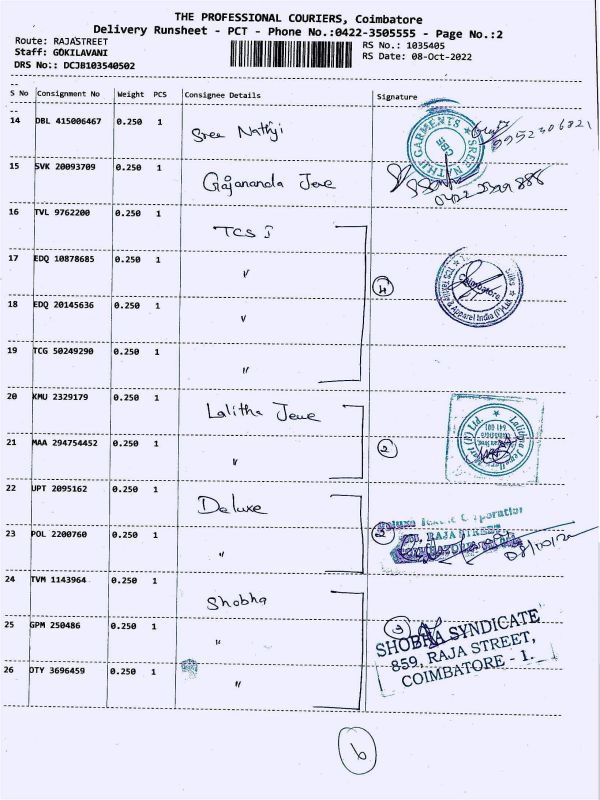 THE PROFESSIONAL COURIERS, Coimbatore
Delivery Runsheet - PCT - Phone No.:0422-3505555 - Page No.:2
Route: RAJASTREET
RS No.: 1035405
Staff: GOKILAVANI
RS Date: 08-Oct-2022
DRS No.: DCJB103540502
S No Consignment No Weight PCS Consignee Details Signature
14 DBL 415006467 0.250 1 Sree Nathji
SREE NATHJI GARMENTS
9952306821
15 SVK 20093709 0.250 1 Gajananda Jewe
16 TVL 9762200 0.250 1 TCS J
17 EDQ 10878685 0.250 1 "
4
Coimbatore
& Apparel India (P) Ltd.
18 EDQ 20145636 0.250 1 "
19 TCG 50249290 0.250 1 "
20 KMU 2329179 0.250 1 Lalitha Jewe
Lalitha Jewellery Mart (P) Ltd.
21 MAA 294754452 0.250 1 "
2
22 UPT 2095162 0.250 1 Deluxe
23 POL 2200760 0.250 1 "
2
RAJA STREET
24 TVM 1143964 0.250 1 Shobha
25 GPM 250486 0.250 1 "
3
SHOBHA SYNDICATE
859, RAJA STREET,
COIMBATORE - 1.
26 OTY 3696459 0.250 1 "
b